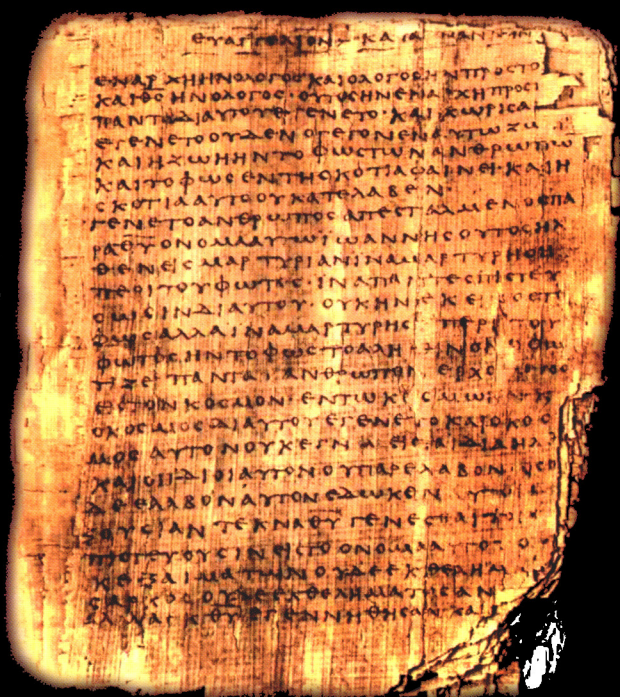 ΕΥΑΓΓΕΛΙΟΝ ΚΑΤΑ ΙΩΑΝΝΗΝ
ΕΝ ΑΡΧΗ ΗΝ Ο ΛΟΓΟΣ ΚΑΙ Ο ΛΟΓΟΣ ΗΝ ΠΡΟΣ ΤΟ
ΚΑΙ ΘΣ ΗΝ Ο ΛΟΓΟΣ · ΟΥΤΟΣ ΗΝ ΕΝ ΑΡΧΗ ΠΡΟΣ
ΠΑΝΤΑ ΔΙ ΑΥΤΟΥ ΕΓΕΝΕΤΟ · ΚΑΙ ΧΩΡΙΣ
ΕΓΕΝΕΤΟ ΟΥΔΕΝ Ο ΓΕΓΟΝΕΝ ΑΥΤΩ ΖΩ
ΚΑΙ Η ΖΩΗ ΗΝ ΤΟ ΦΩΣ ΤΩΝ ΑΝΘΡΩΠΩ
ΚΑΙ ΤΟ ΦΩΣ ΕΝ ΤΗ ΣΚΟΤΙΑ ΦΑΙΝΕΙ · ΚΑΙ Η
ΣΚΟΤΙΑ ΑΥΤΟ ΟΥ ΚΑΤΕΛΑΒΕΝ
ΓΕΝΕΤΟ ΑΝΘΡΩΠΟΣ ΑΠΕΣΤΑΛΜΕΝΟΣ ΠΑ
ΡΑ ΘΥ ΟΝΟΜΑ ΑΥΤΩ ΙΩΑΝΝΗΣ ΟΥΤΟΣ ΗΛ
ΘΕΝ ΕΙΣ ΜΑΡΤΥΡΙΑΝ ΙΝΑ ΜΑΡΤΥΡΗΣΗ
ΠΕΡΙ ΤΟΥ ΦΩΤΟΣ · ΙΝΑ ΠΑΝΤΕΣ ΠΙΣΤΕΥ
ΣΩΣΙΝ ΔΙ ΑΥΤΟΥ · ΟΥΚ ΗΝ ΕΚΕΙΝΟΣ ΤΟ
ΦΩΣ ΑΛΛΑ ΙΝΑ ΜΑΡΤΥΡΗΣΗ ΠΕΡΙ ΤΟΥ
ΦΩΤΟΣ ΗΝ ΤΟ ΦΩΣ ΤΟ ΑΛΗΘΙΝΟΝ
ΤΙΖΕΙ ΠΑΝΤΑ ΑΝΘΡΩΠΟΝ ΕΡΧΟΜΕΝΟΝ
ΕΙΣ ΤΟΝ ΚΟΣΜΟΝ · ΕΝ ΤΩ ΚΟΣΜΩ ΗΝ Κ
Ο ΚΟΣΜΟΣ ΔΙ ΑΥΤΟΥ ΕΓΕΝΕΤΟ ΚΑΙ Ο ΚΟ
ΜΟΣ ΑΥΤΟΝ ΟΥΚ ΕΓΝΩ ΕΙΣ ΤΑ ΙΔΙΑ ΗΛΘ
ΚΑΙ ΟΙ ΙΔΙΟΙ ΑΥΤΟΝ ΟΥ ΠΑΡΕΛΑΒΟΝ · ΟΣΟΙ
ΔΕ ΕΛΑΒΟΝ ΑΥΤΟΝ ΕΔΩΚΕΝ ΑΥΤΟΙΣ
ΞΟΥΣΙΑΝ ΤΕΚΝΑ ΘΥ ΓΕΝΕΣΘΑΙ ΤΟΙΣ
ΠΙΣΤΕΥΟΥΣΙΝ ΕΙΣ ΤΟ ΟΝΟΜΑ ΑΥΤΟΥ Ο
ΚΕΞ ΑΙΜΑΤΩΝ ΟΥΔΕ ΕΚ ΘΕΛΗΜΑ
ΣΑΡΚΟΣ ΟΥΔΕ ΕΚ ΘΕΛΗΜΑΤΟΣ ΑΝ
ΑΛΛ ΕΚ ΘΥ ΕΓΕΝΝΗΘΗΣΑΝ ΚΑΙ